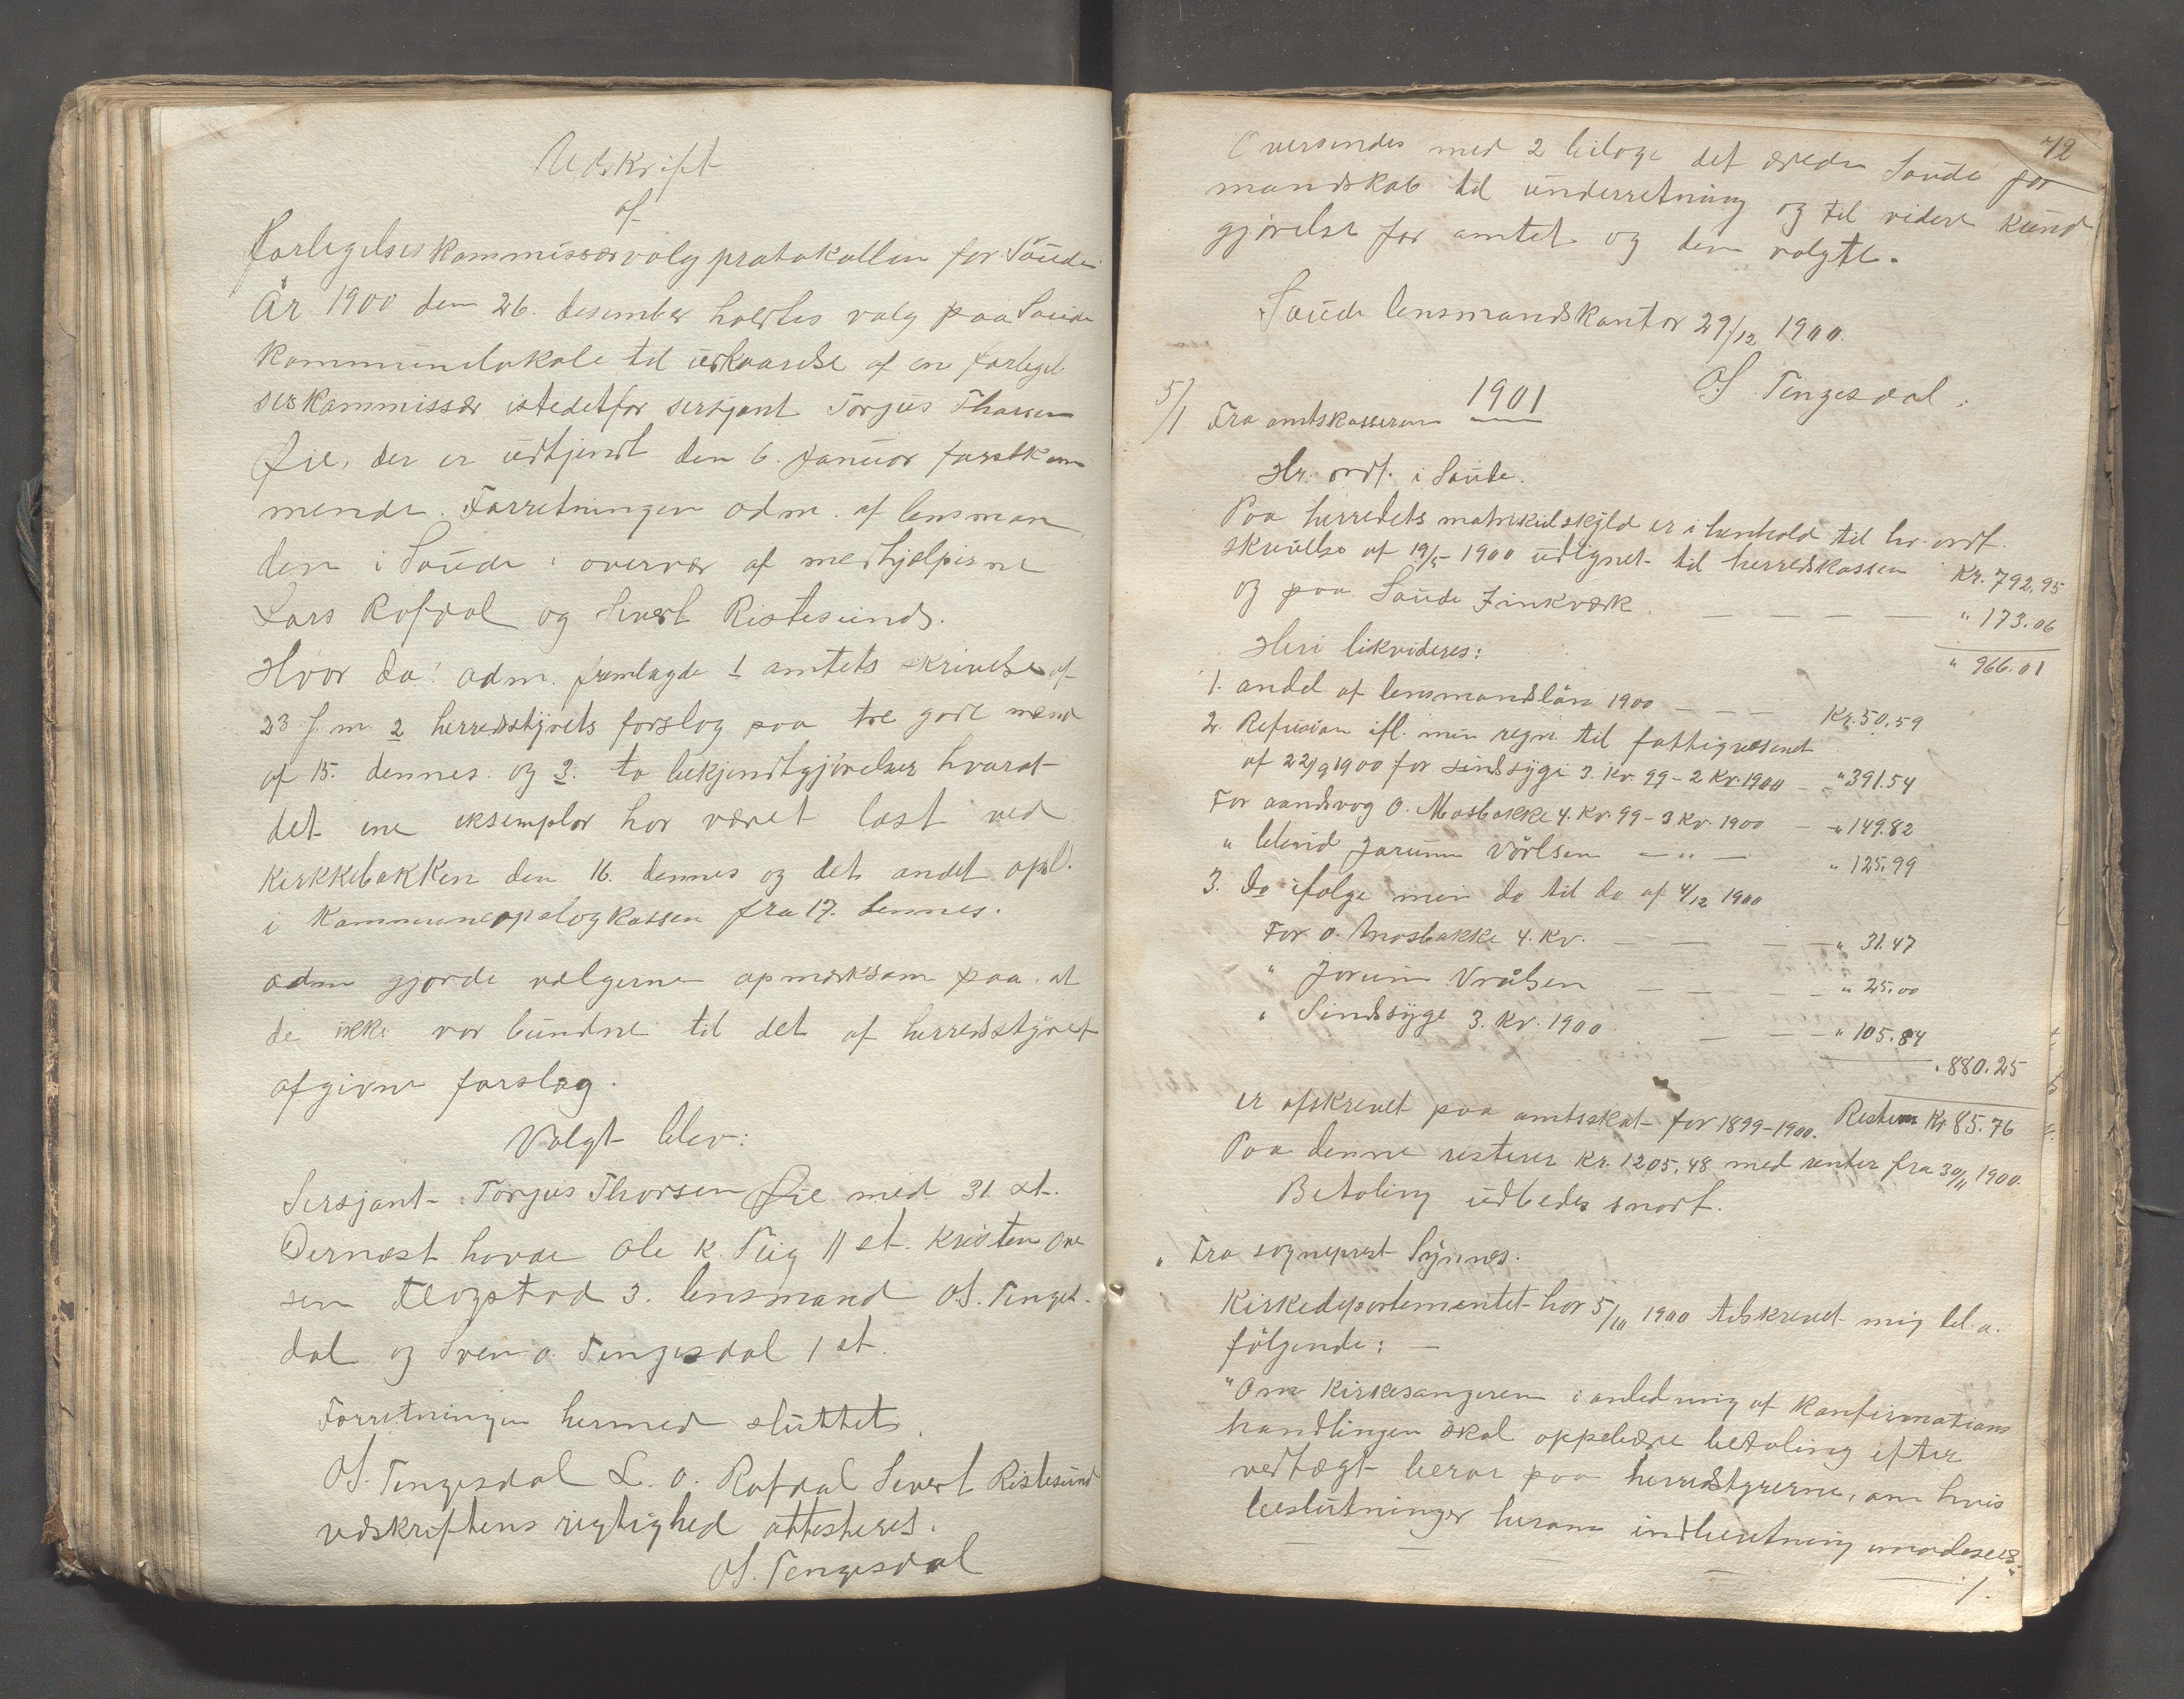 Udskrift
af
Forlegelseskommissærvalgprotokollen for Saude
År 1900 den 26. desember holdtes valg paa Saude
kommunelokale til udkaarelse af en forlegel
seskommissær istedetfor sersjant Torjus Thorsen
Øie, der er udtjendt den 6. januar førstkom
mende. Forretningen adm. af lensman
den i Saude i overvær af medhjælperne
Lars Rafdal og Sivert Ristesund.
Hvor da: adm. fremlagde 1 amtets skrivelse af
23 f. m. 2 herredsstyrets forslag paa tre gode mænd
af 15. dennes og 3. to bekjendtgjørelser hvoraf
det ene eksemplar har været læst ved
kirkebakken den 16. dennes og det andet opsl.
i kommuneopslogkassen fra 17. dennes.
adm gjorde vælgerne opmærksom paa at
de ikke var bundne til det af herredsstyret
afgivne forslag.
Valgt blev:
Sersjant Torjus Thorsen Øie med 31 st.
Dernæst havde Ole K. Teig 11 st. Kristen One
sen Flogstad 3. lensmand O.S. Tenges
dal og Sven O. Tengesdal 1 st.
Forretningen hermed sluttet.
O.S. Tengesdal L. O. Rafdal Sivert Ristesund
Udskriftens rigtighed attesteres.
O.S. Tengesdal
72
Oversendes med 2 biloge det ærede Saude for
mandskab til underretning og til videre kund
gjørelse for amtet og den valgte.
Saude lensmandskontor 29/12 1900.
O.S. Tengesdal.
1901
5/1 Fra amtskassereren
Hr. ordf. i Saude.
Paa herredets matrikulskyld er i henhold til hr. ordf.
skrivelse af 19/5 1900 udlignet til herredskassen Kr. 792,95
og paa Saude Zinkværk — — — — " 173.06
" 966.01
Heri likvideres:
1. andel af lensmandsløn 1900 — — — Kr. 50,59
2. Refusion ifl. min regn. til fattigvæsenet
af 22/9 1900 for sindssyge 3. Kv. 99 - 2 Kv. 1900 — " 391.54
For aandsvag O. Mosbakke 4. Kv. 99 - 3 Kv. 1900 — " 149.82
" blivid Jorunn Vrålsen — " — " 125,99
3. Do ifølge min do til do af 4/12 1900
For O. Mosbakke 4. Kv. — — — — " 31.47
" Jorunn Vrålsen — — — — " 25,00
" Sindssyge 3. Kv. 1900 — — — " 105.84
" 880.25
er afskrevet paa amtsskat for 1899-1900. Resterer Kr 85.76
Paa denne resterer Kr. 1205,48 med renter fra 30/11 1900.
Betaling udbedes snart.
" Fra sogneprest Synnes:
Kirkedepartementet har 5/10 1900 tilskrevet mig bl. a.
følgende: —
"Om kirkesangeren i anledning af konfirmations
handlingen skal oppebære betaling efter
vedtægt beror paa herredsstyrerne, om hvis
beslutninger herom indberetning imødesees."
— — — — — /.